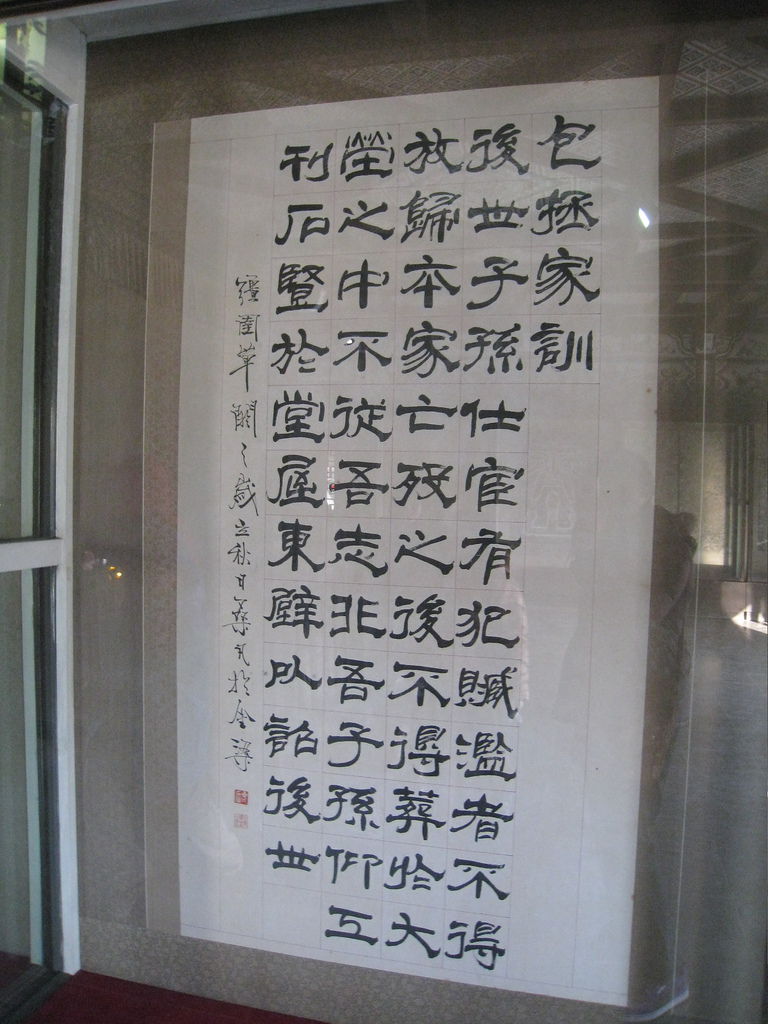 包拯家訓
後世子孫仕宦有犯贓濫者不得
放歸本家亡殁之後不得葬於大
塋之中不從吾志非吾子孫仰工
刊石豎於堂屋東壁以詔後世
彊圉單閼之歲立秋日